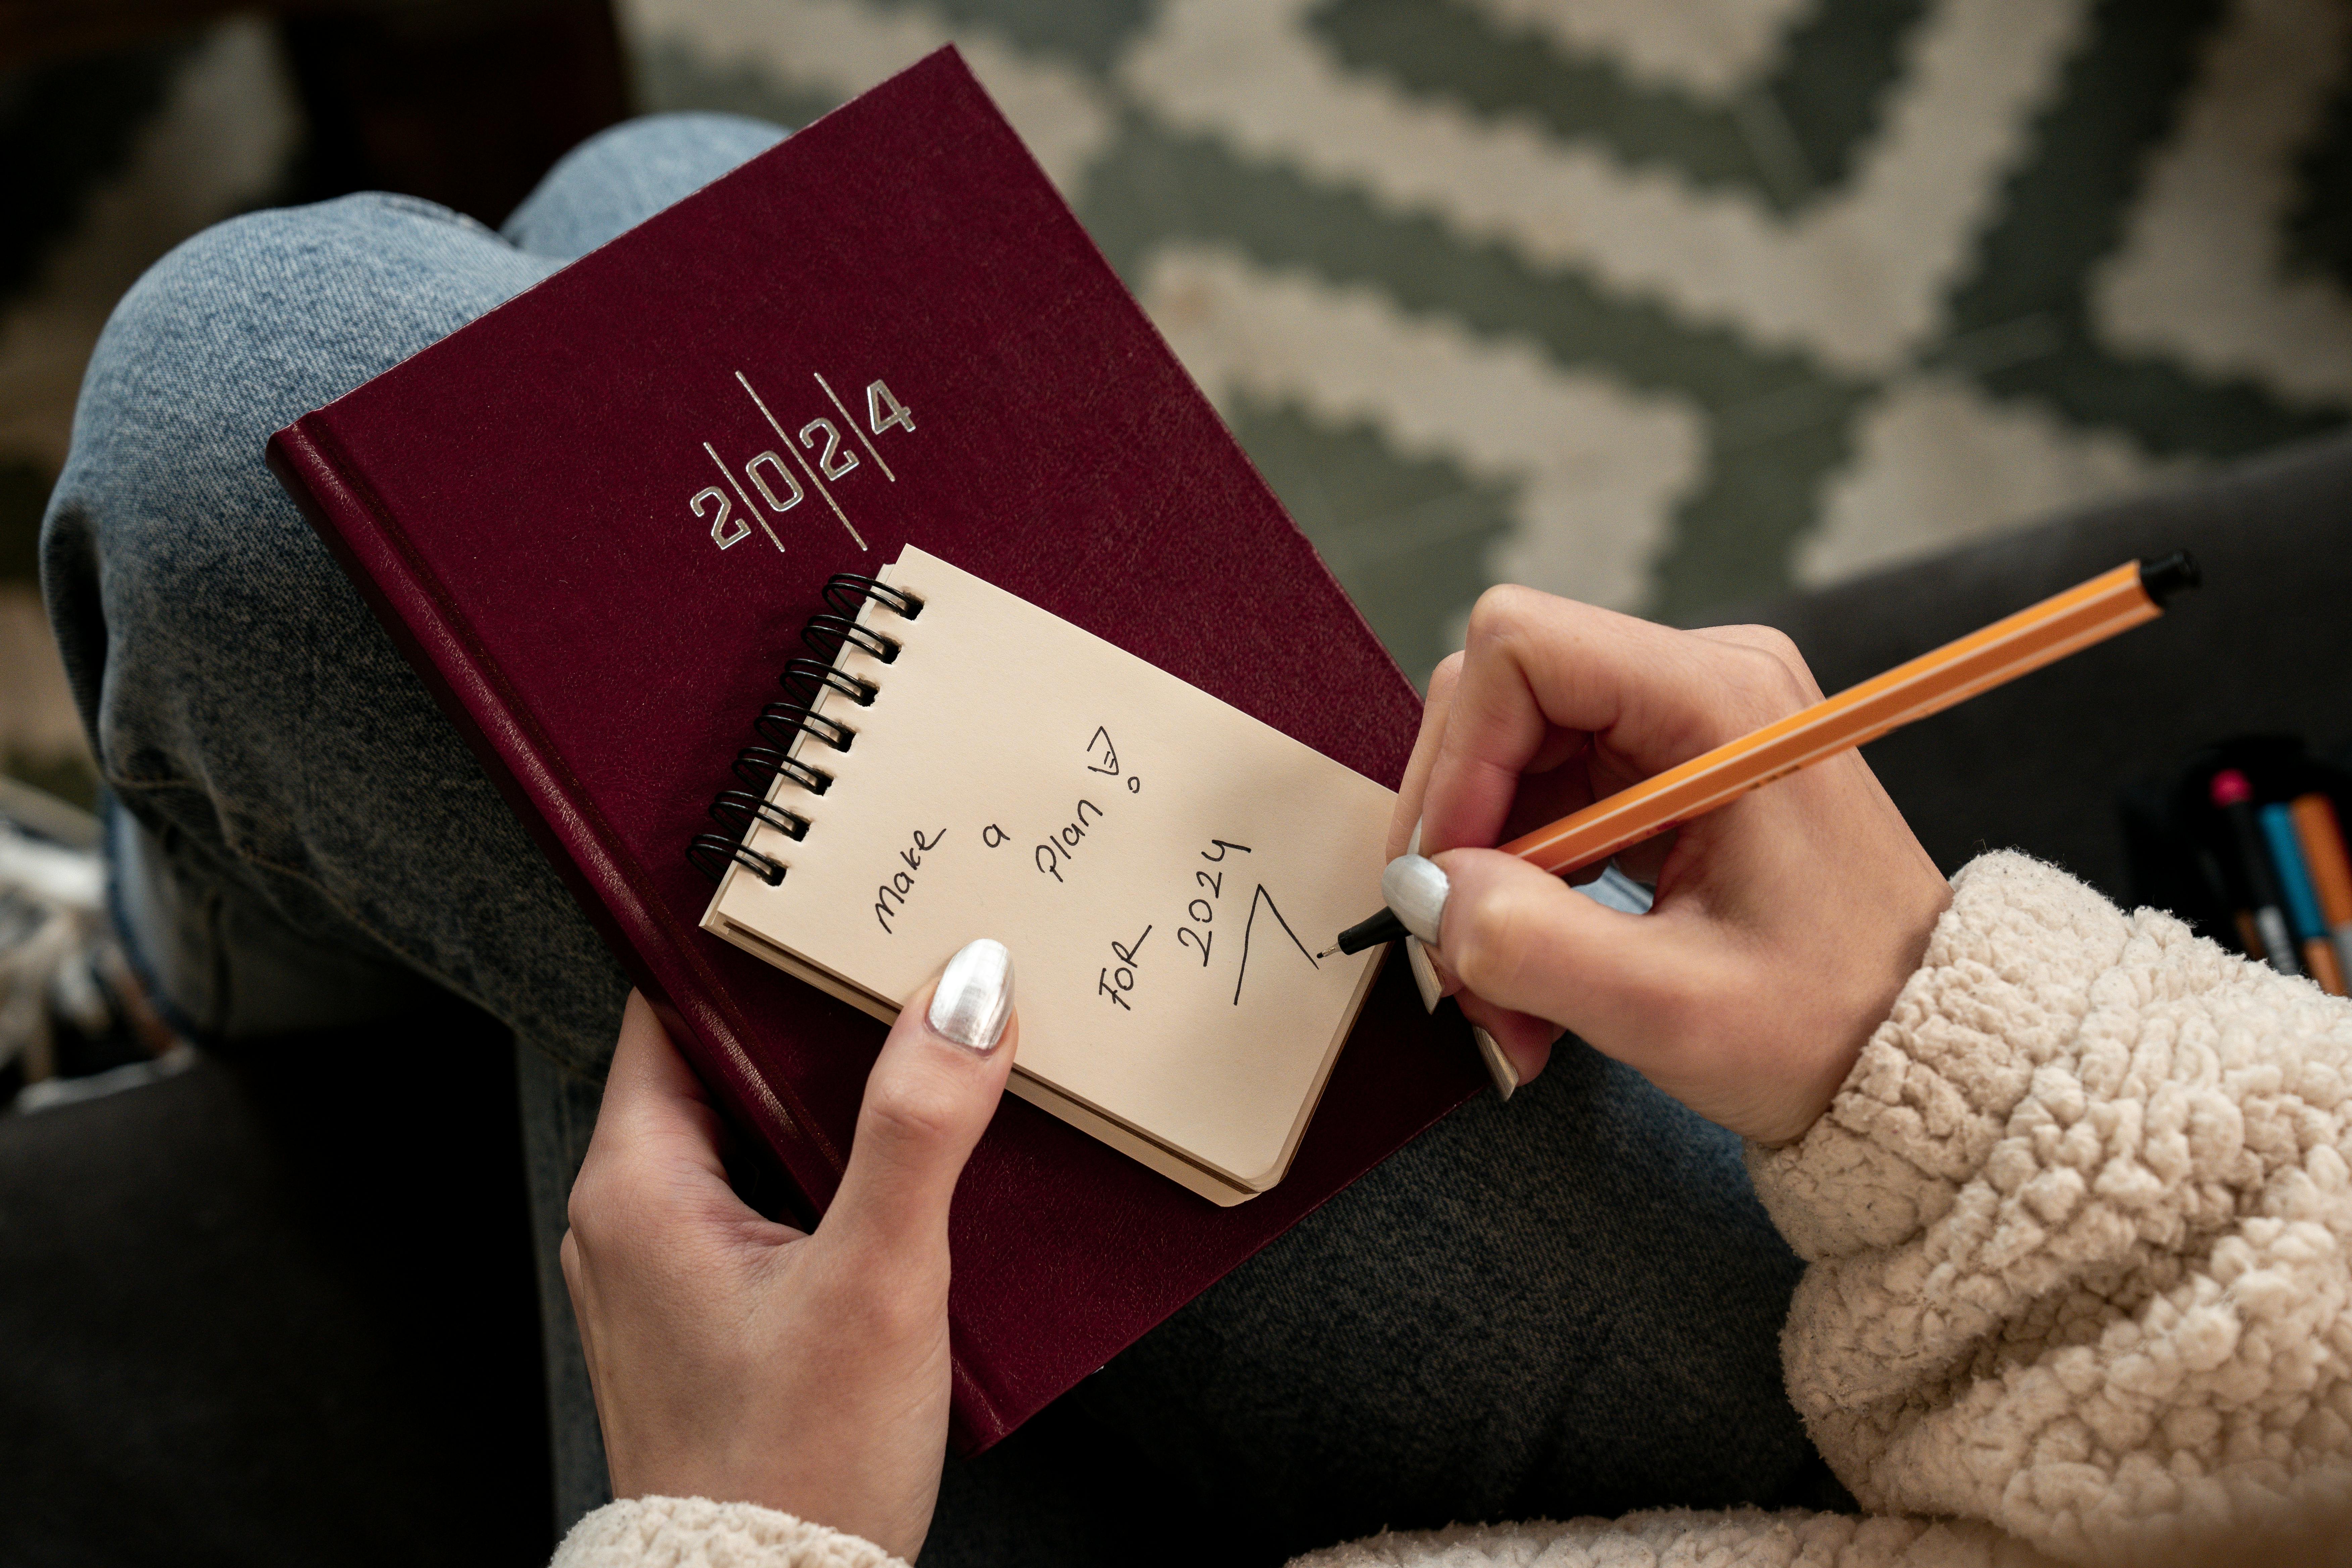 2024
Make
a
Plan!
FOR
2024